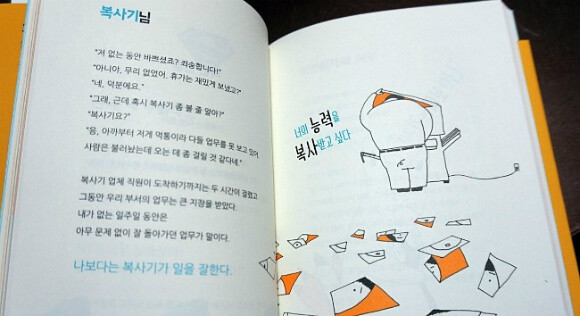 복사기님
"저 없는 동안 바쁘셨죠? 죄송합니다!"
"아니야, 무리 없었어. 휴가는 재밌게 보냈고?"
"네, 덕분에요."
"그래, 근데 혹시 복사기 좀 볼 줄 알아?"
"복사기요?"
"응, 아까부터 저게 먹통이라 다들 업무를 못 보고 있어.
사람은 불러놨는데 오는 데 좀 걸릴 것 같다네."
복사기 업체 직원이 도착하기까지는 두 시간이 걸렸고
그동안 우리 부서의 업무는 큰 지장을 받았다.
내가 없는 일주일 동안은
아무 문제 없이 잘 돌아가던 업무가 말이다.
나보다는 복사기가 일을 잘한다.
너의 능력을
복사하고 싶다